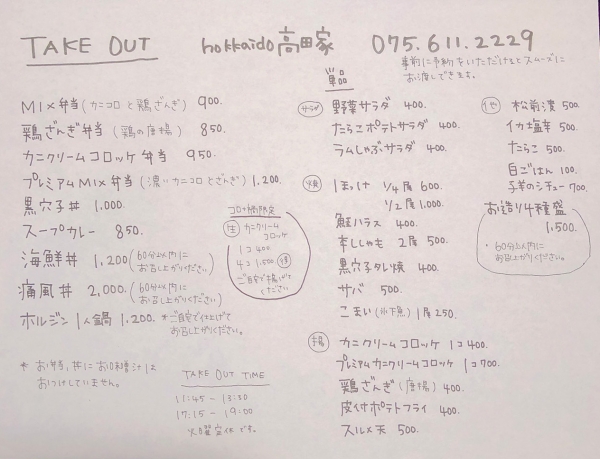 TAKE OUT hokkaido 高田家 075.611.2229
事前に予約をいただけるとスムーズに
お渡しできます。
MIX弁当(カニコロと鶏ざんぎ) 900.
鶏ざんぎ弁当 (鶏の唐揚) 850.
カニクリームコロッケ弁当 950.
プレミアムMIX弁当(濃いカニコロとざんぎ) 1,200.
黒穴子丼 1,000.
スープカレー 850.
海鮮丼 1,200(60分以内に
お召し上がりください)
痛風丼 2,000.(60分以内に
お召し上がりください)
ホルジン1人鍋 1,200. *ご自宅で仕上げて
お召し上がりください。
* お弁当、丼にお味噌汁は
おつけしていません。
コロナ期間限定
生 カニクリーム
コロッケ
1コ 400
4コ 1,500
ご自宅で揚げて
ください
TAKE OUT TIME
11:45 - 13:30
17:15 - 19:00
火曜定休です。
単品
サラダ 野菜サラダ 400.
たらこポテトサラダ 400.
ラムしゃぶサラダ 400.
焼 1ほっけ 1/4尾 600.
1/2尾 1,000.
鮭ハラス 400.
本ししゃも 2尾 500.
黒穴子タレ焼 400.
サバ 500.
こまい(氷下魚) 1尾 250.
揚 カニクリームコロッケ 1コ 400.
プレミアムカニクリームコロッケ 1コ700.
鶏ざんぎ(唐揚) 400.
皮付ポテトフライ 400.
スルメ天 500.
他 松前漬 500.
イカ塩辛 500.
たらこ 500.
白ごはん 100.
子羊のシチュー 700.
お造り4種盛
1,500.
・60分以内に
お召し上がりください。